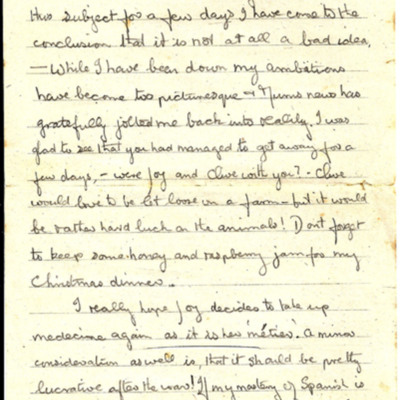 this subject for a few days I have come to the
conclusion that it is not at all a bad idea.
– While I have been down my ambitions
have become too picturesque & Mums news has
gratefully jolted me back into reality. I was
glad to see that you had managed to get away for a
few days, – were Joy and Clive with you? – Clive
would love to be let loose on a farm – but it would
be rather hard luck on the animals! Dont forget
to keep some honey and raspberry jam for my
Christmas dinner.
I really hope Joy decides to take up
medecine again as it is her 'métier'. A minor
consideration as well is, that it should be pretty
lucrative after the war! If my mastery of Spanish is